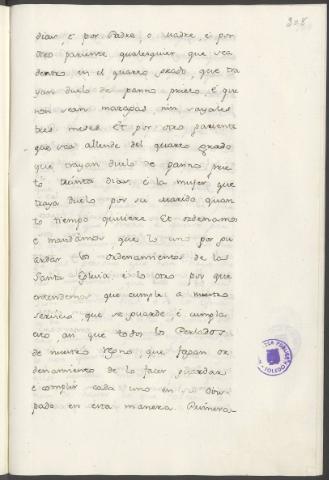 308
dias, e por Padre, o Madre, e por
otro pariente qualesquier que sea
dentro, en el quarto grado, que tra
yan duelo de panno prieto, e que
non sean margas, nin sayales
tres meses. Et por otro pariente
que sea allende del quarto grado
que trayan duelo de panno prie
to treinta dias, e la muger que
traya duelo por su marido quan
to tiempo quisiere. Et ordenamos
e mandamos que lo uno por gu
ardar los ordenamientos de la
Santa Eglesia e lo otro por que
entendemos que cumple a nuestro
servicio que se guarde e cumpla
esto an que todos los Perlados
de nuestro regno que fagan or
denamiento de lo facer guardar
e complir cada uno en su Obis
pado en esta manera. Primera-
TOLEDO